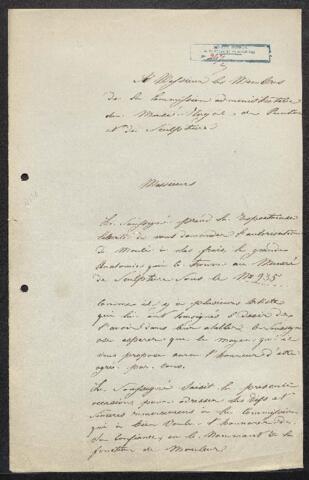 A Messieurs les Membres
de la Commission administrative
du Musée Royal de Peinture
et de Sculpture
Messieurs
Le Soussigné prend la respectueuse
liberté de vous demander l'autorisation
de Moulé à ses frais la grande
Anatomie qui se trouve au Musée
de Sculpture sous le No 935
Comme il y a plusieurs Artiste
qui lui ont temoignés l'desir de
l'avoir dans leur atelier le Soussigné
ose esperer que le moyen qu'il
vous propose aura l'honneur d'etre
agréé par vous.
Le Soussigné Saisit la presente
occasion pour adresser les
Sincères remerciments à la Commission
qui à bien voulu l'honorer de
Sa Confiance, en le Nommant de la
fonction de Mouleur